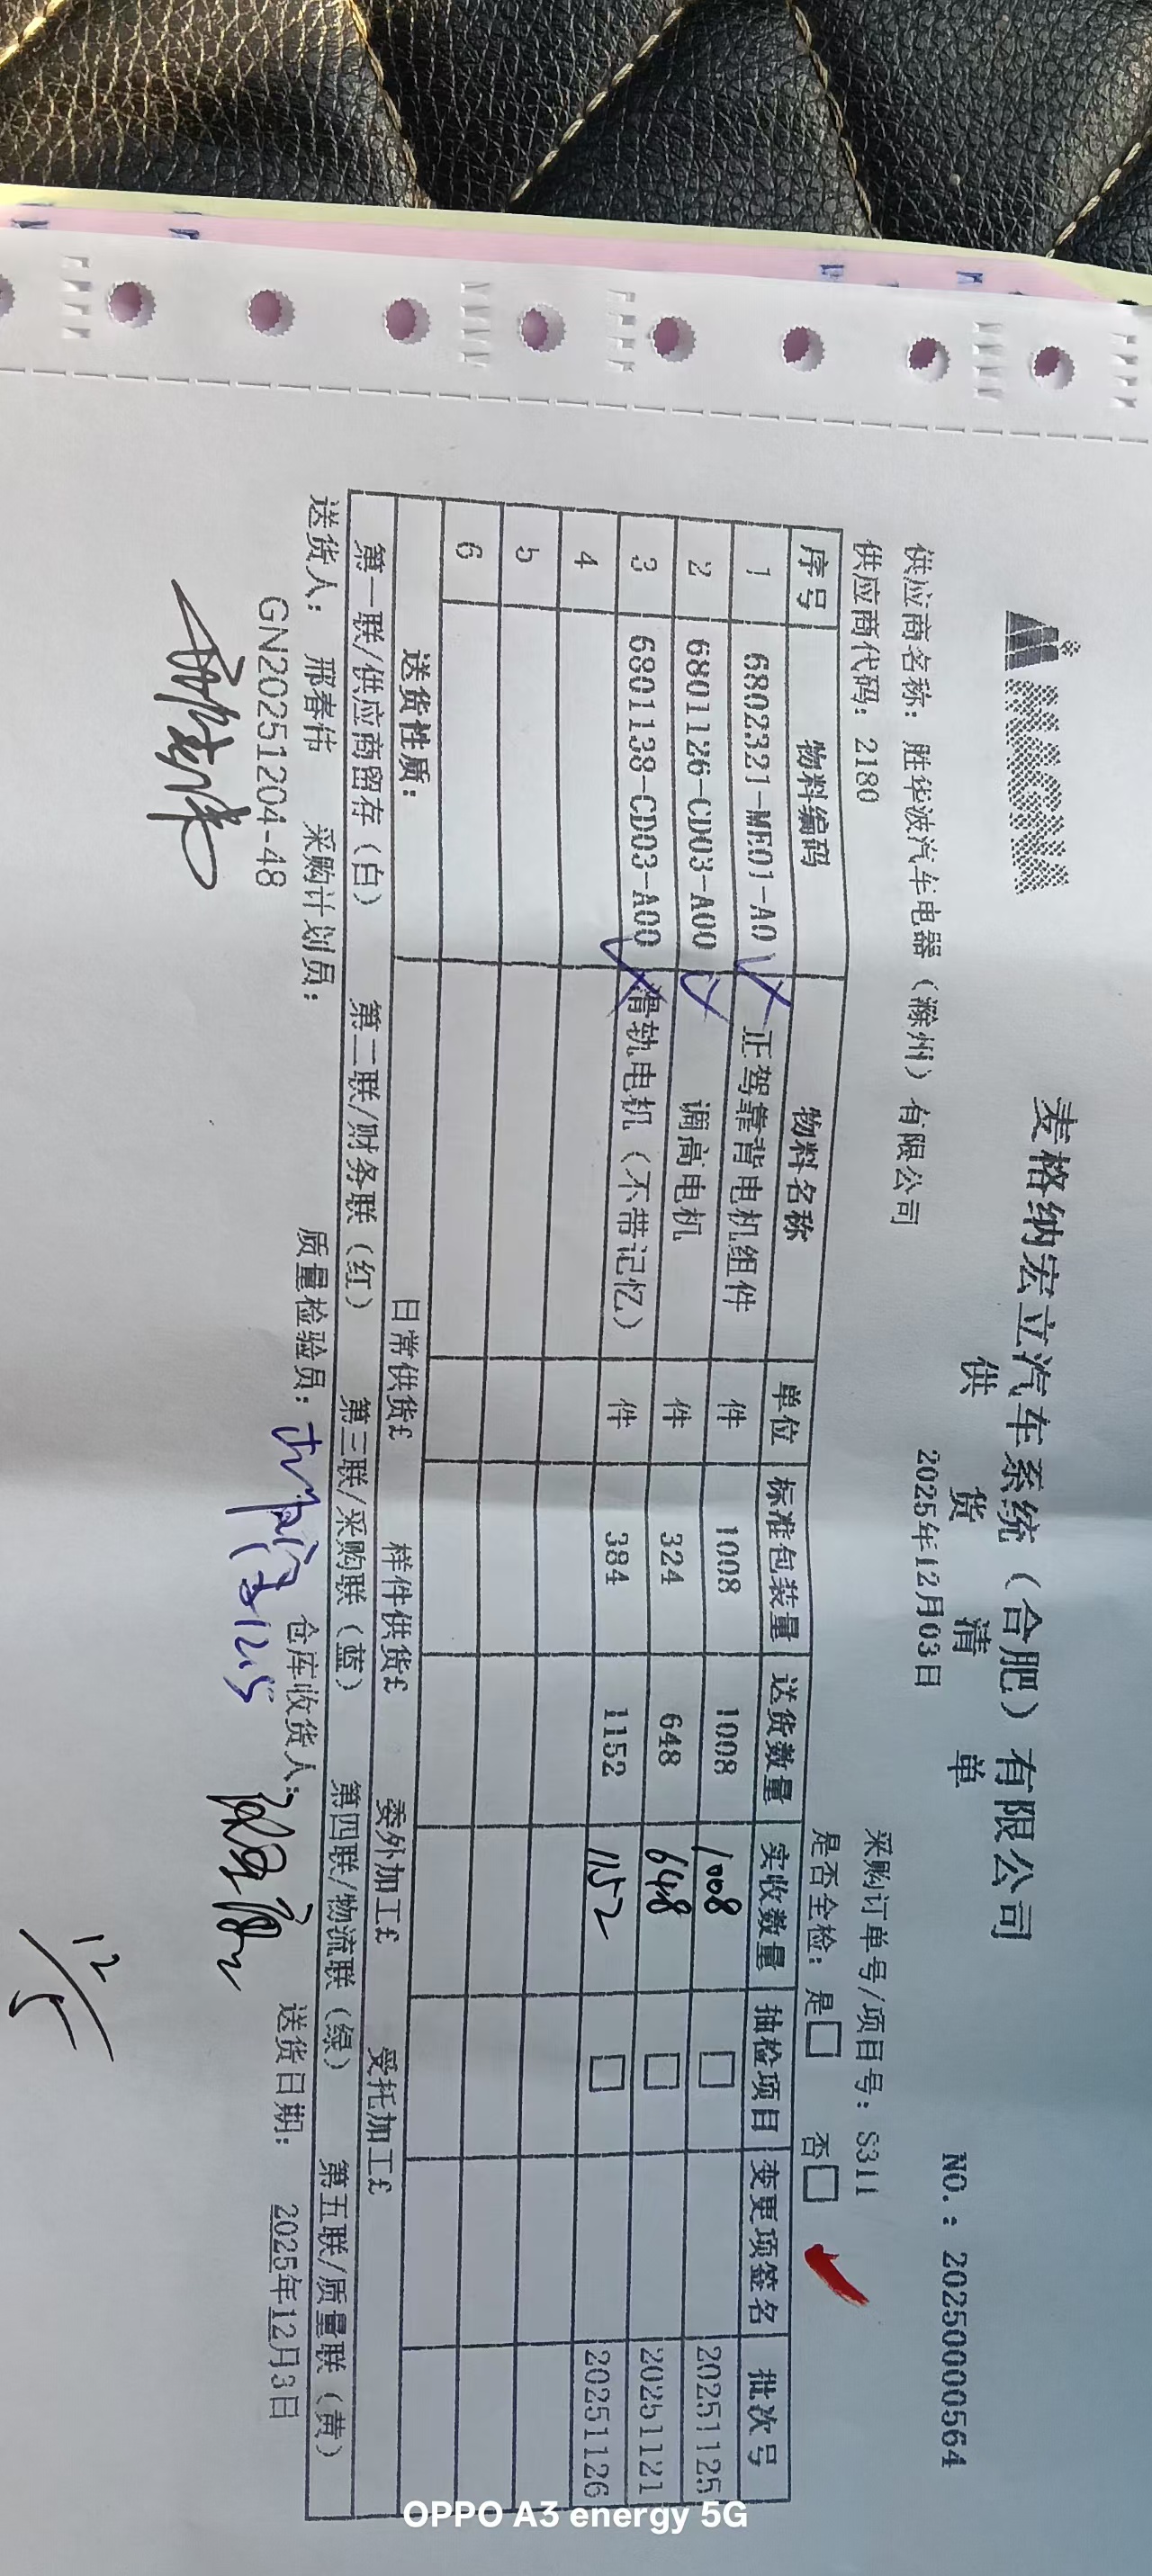 MAGNA
麦格纳宏立汽车系统（合肥）有限公司
供 货 清 单
NO.: 20250000564
2025年12月03日
供应商名称: 胜华波汽车电器（滁州）有限公司
采购订单号/项目号: S311
供应商代码: 2180
是否全检: 是□ 否□
序号 物料编码 物料名称 单位 标准包装量 送货数量 实收数量 抽检项目 变更项签名 批次号
1 6802321-ME01-A0 正驾靠背电机组件 件 1008 1008 1008 □ 20251125
2 6801126-CD03-A00 调高电机 件 324 648 648 □ 20251121
3 6801138-CD03-A00 滑轨电机（不带记忆） 件 384 1152 1152 □ 20251126
4
5
6
送货性质: 日常供货£ 样件供货£ 委外加工£ 受托加工£
第一联/供应商留存（白） 第二联/财务联（红） 第三联/采购联（蓝） 第四联/物流联（绿） 第五联/质量联（黄）
送货人: 邢春伟 采购计划员: 质量检验员: 仓库收货人: 送货日期: 2025年12月3日
GN20251204-48
12.5
12/5
OPPO A3 energy 5G